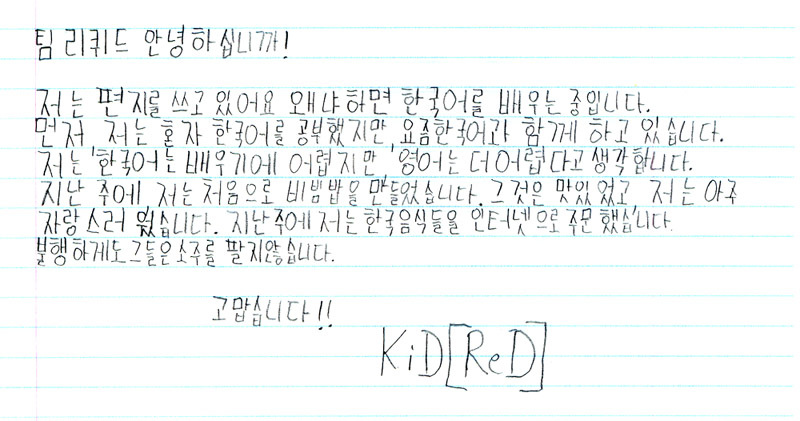 팀 리퀴드 안녕하십니까!
저는 편지를 쓰고 있어요 왜냐하면 한국어를 배우는 중입니다.
먼저 저는 혼자 한국어를 공부했지만, 요즘한국어과 함께 하고 있습니다.
저는 한국어는 배우기에 어렵지만 영어는 더 어렵다고 생각합니다.
지난 주에 저는 처음으로 비빔밥을 만들었습니다. 그것은 맛있었고, 저는 아주
자랑스러웠습니다. 지난주에 저는 한국음식들을 인터넷으로 주문했습니다.
불행하게도 그들은 소주를 팔지않습니다.
고맙습니다!!
KiD[ReD]